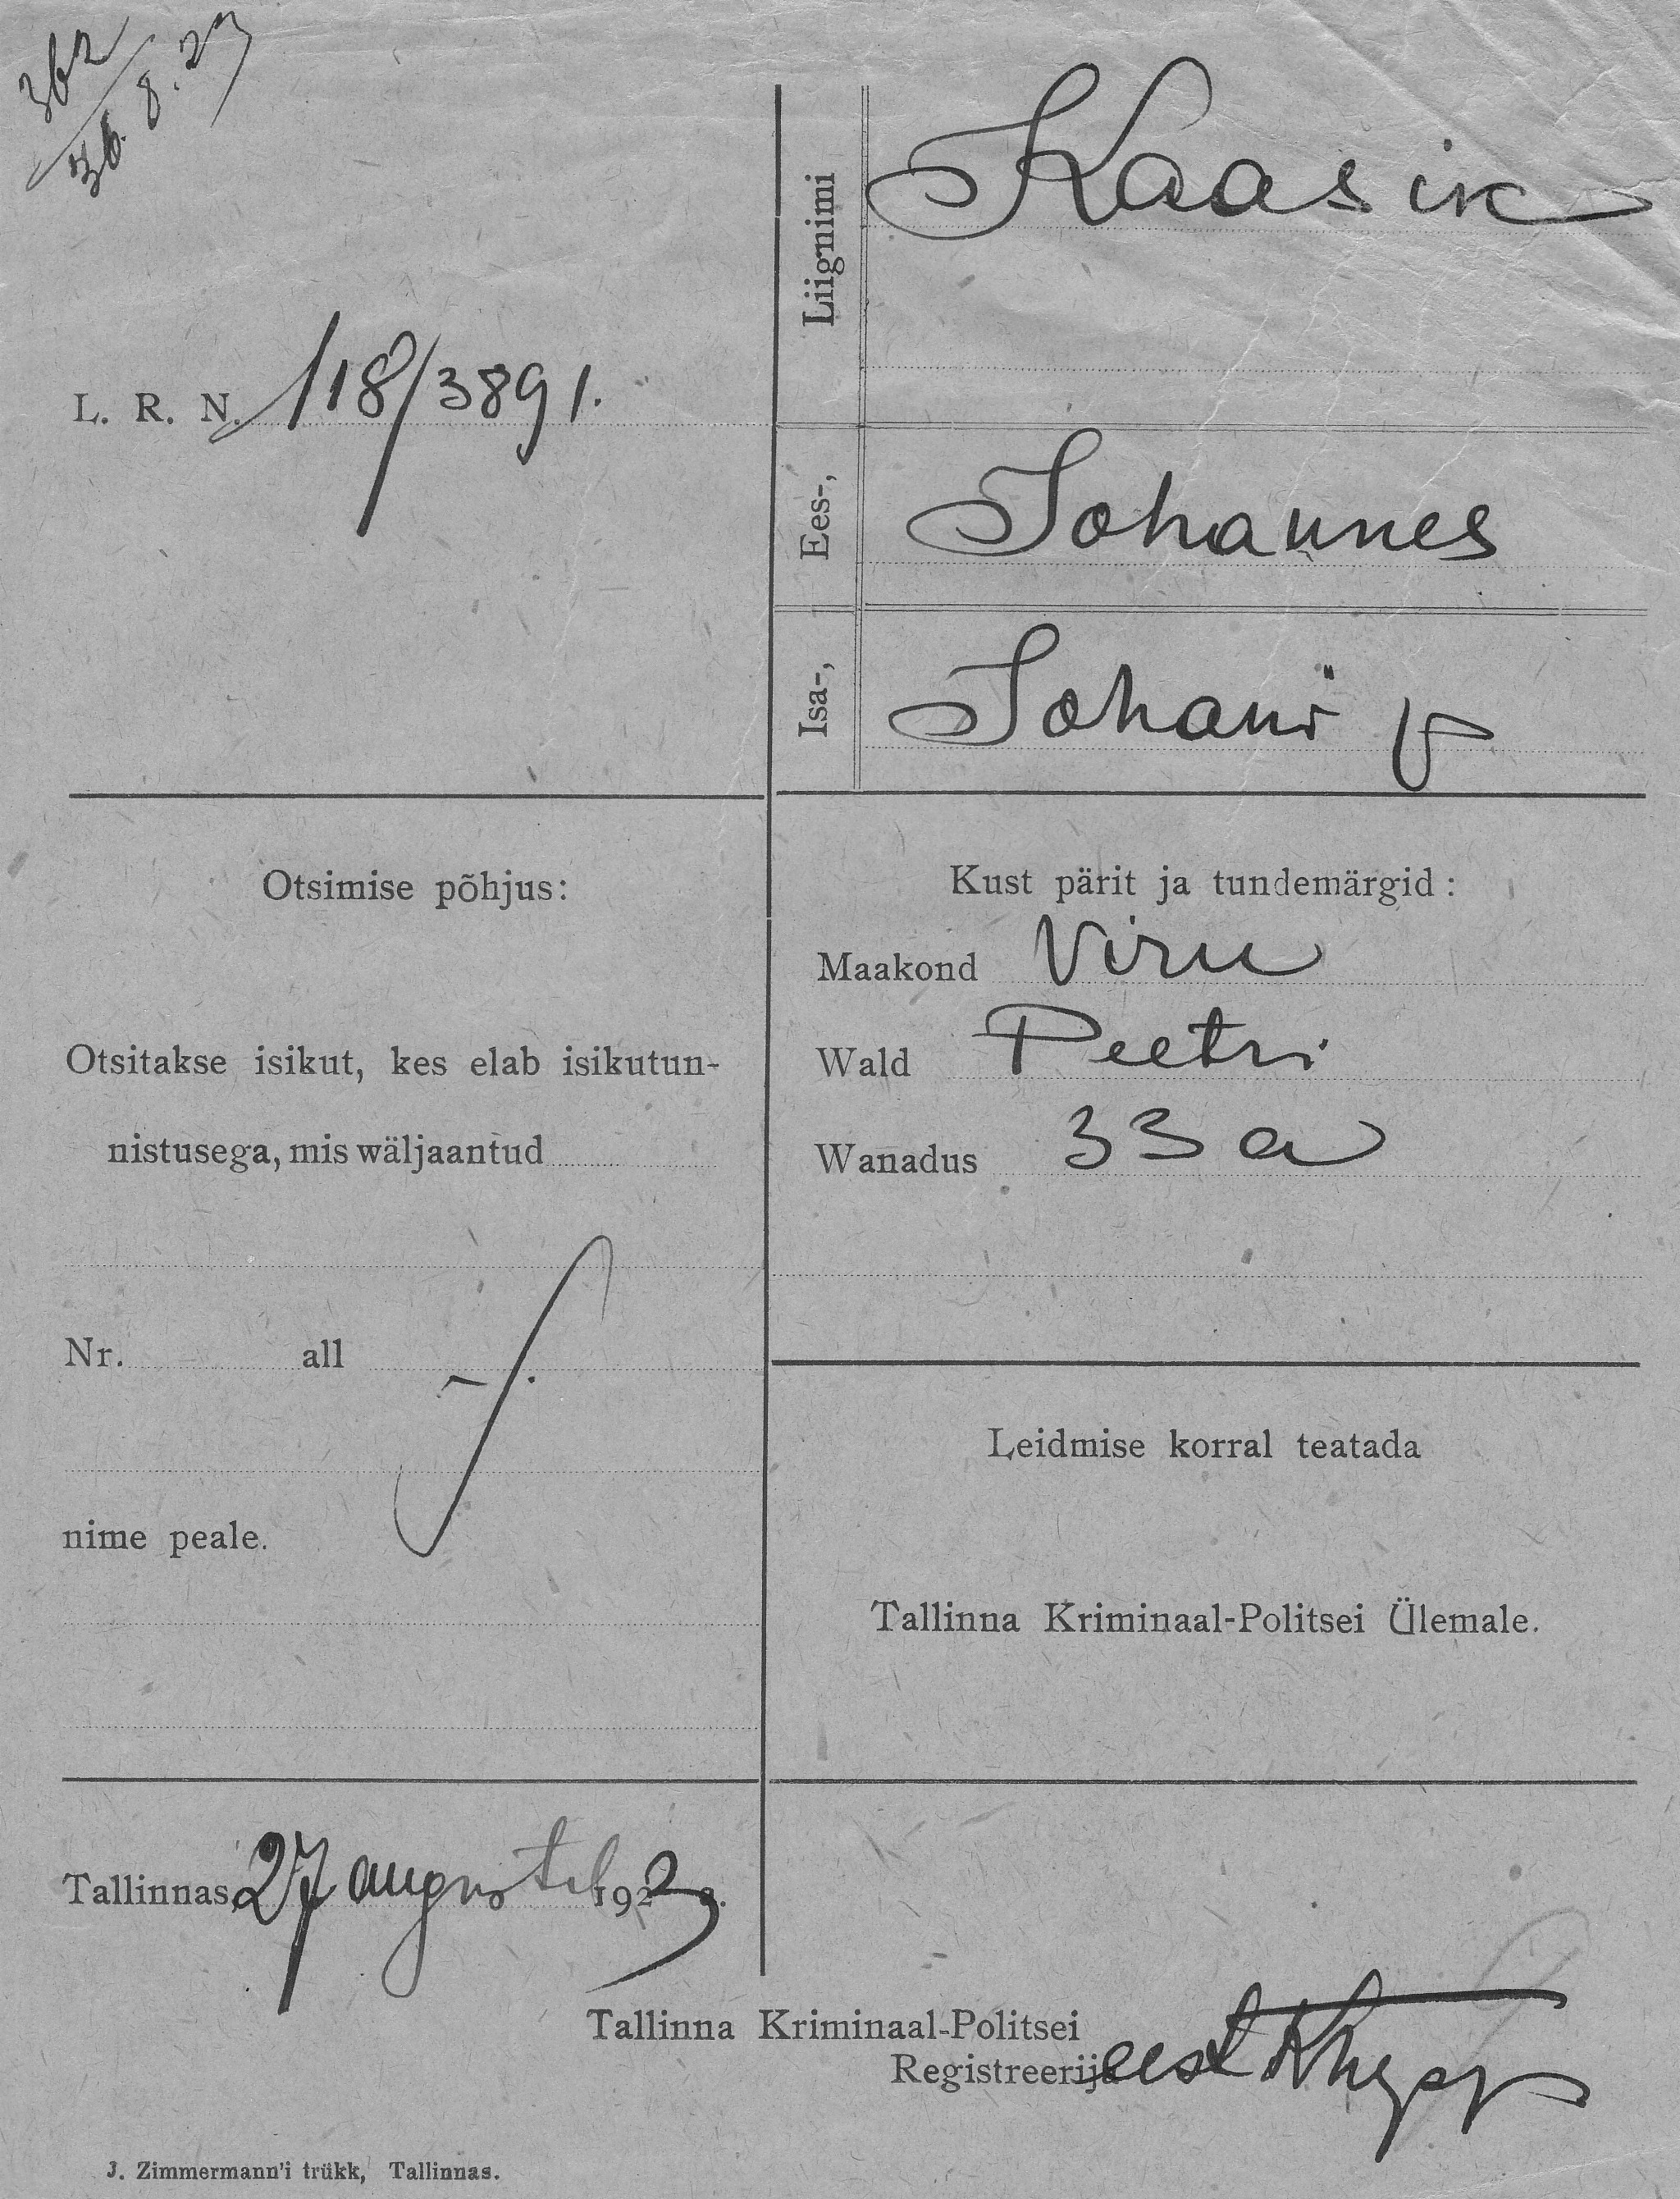 362
36. 8. 23
L. R. N. 118/3891.
Liignimi Kaasik
Ees-, Johannes
Isa-, Johani p
Otsimise põhjus:
Otsitakse isikut, kes elab isikutun-
nistusega, mis wäljaantud
Nr. all
nime peale.
Kust pärit ja tundemärgid:
Maakond Viru
Wald Peetri
Wanadus 33 a
Leidmise korral teatada
Tallinna Kriminaal-Politsei Ülemale.
Tallinnas, 27 augustil 1923 a.
Tallinna Kriminaal-Politsei
Registreerija eest
J. Zimmermann'i trükk, Tallinnas.